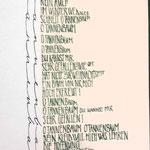 NEIN AUCH
IM WINTER WENN ES
SCHNEIT O TANNENBAUM
O TANNENBAUM
O TANNENBAUM
O TANNENBAUM
DU KANNST MIR
SEHR GEFALLEN WIE OFT
HAT NICHT ZUR WEIHNACHTSZEIT
EIN BAUM VON DIR MICH
HOCH ERFREUT
O TANNENBAUM
O TANNENBAUM DU KANNST MIR
SEHR GEFALLEN
O TANNENBAUM O TANNENBAUM
DEIN KLEID WILL MICH WAS LEHREN
DIE HOFFNUNG